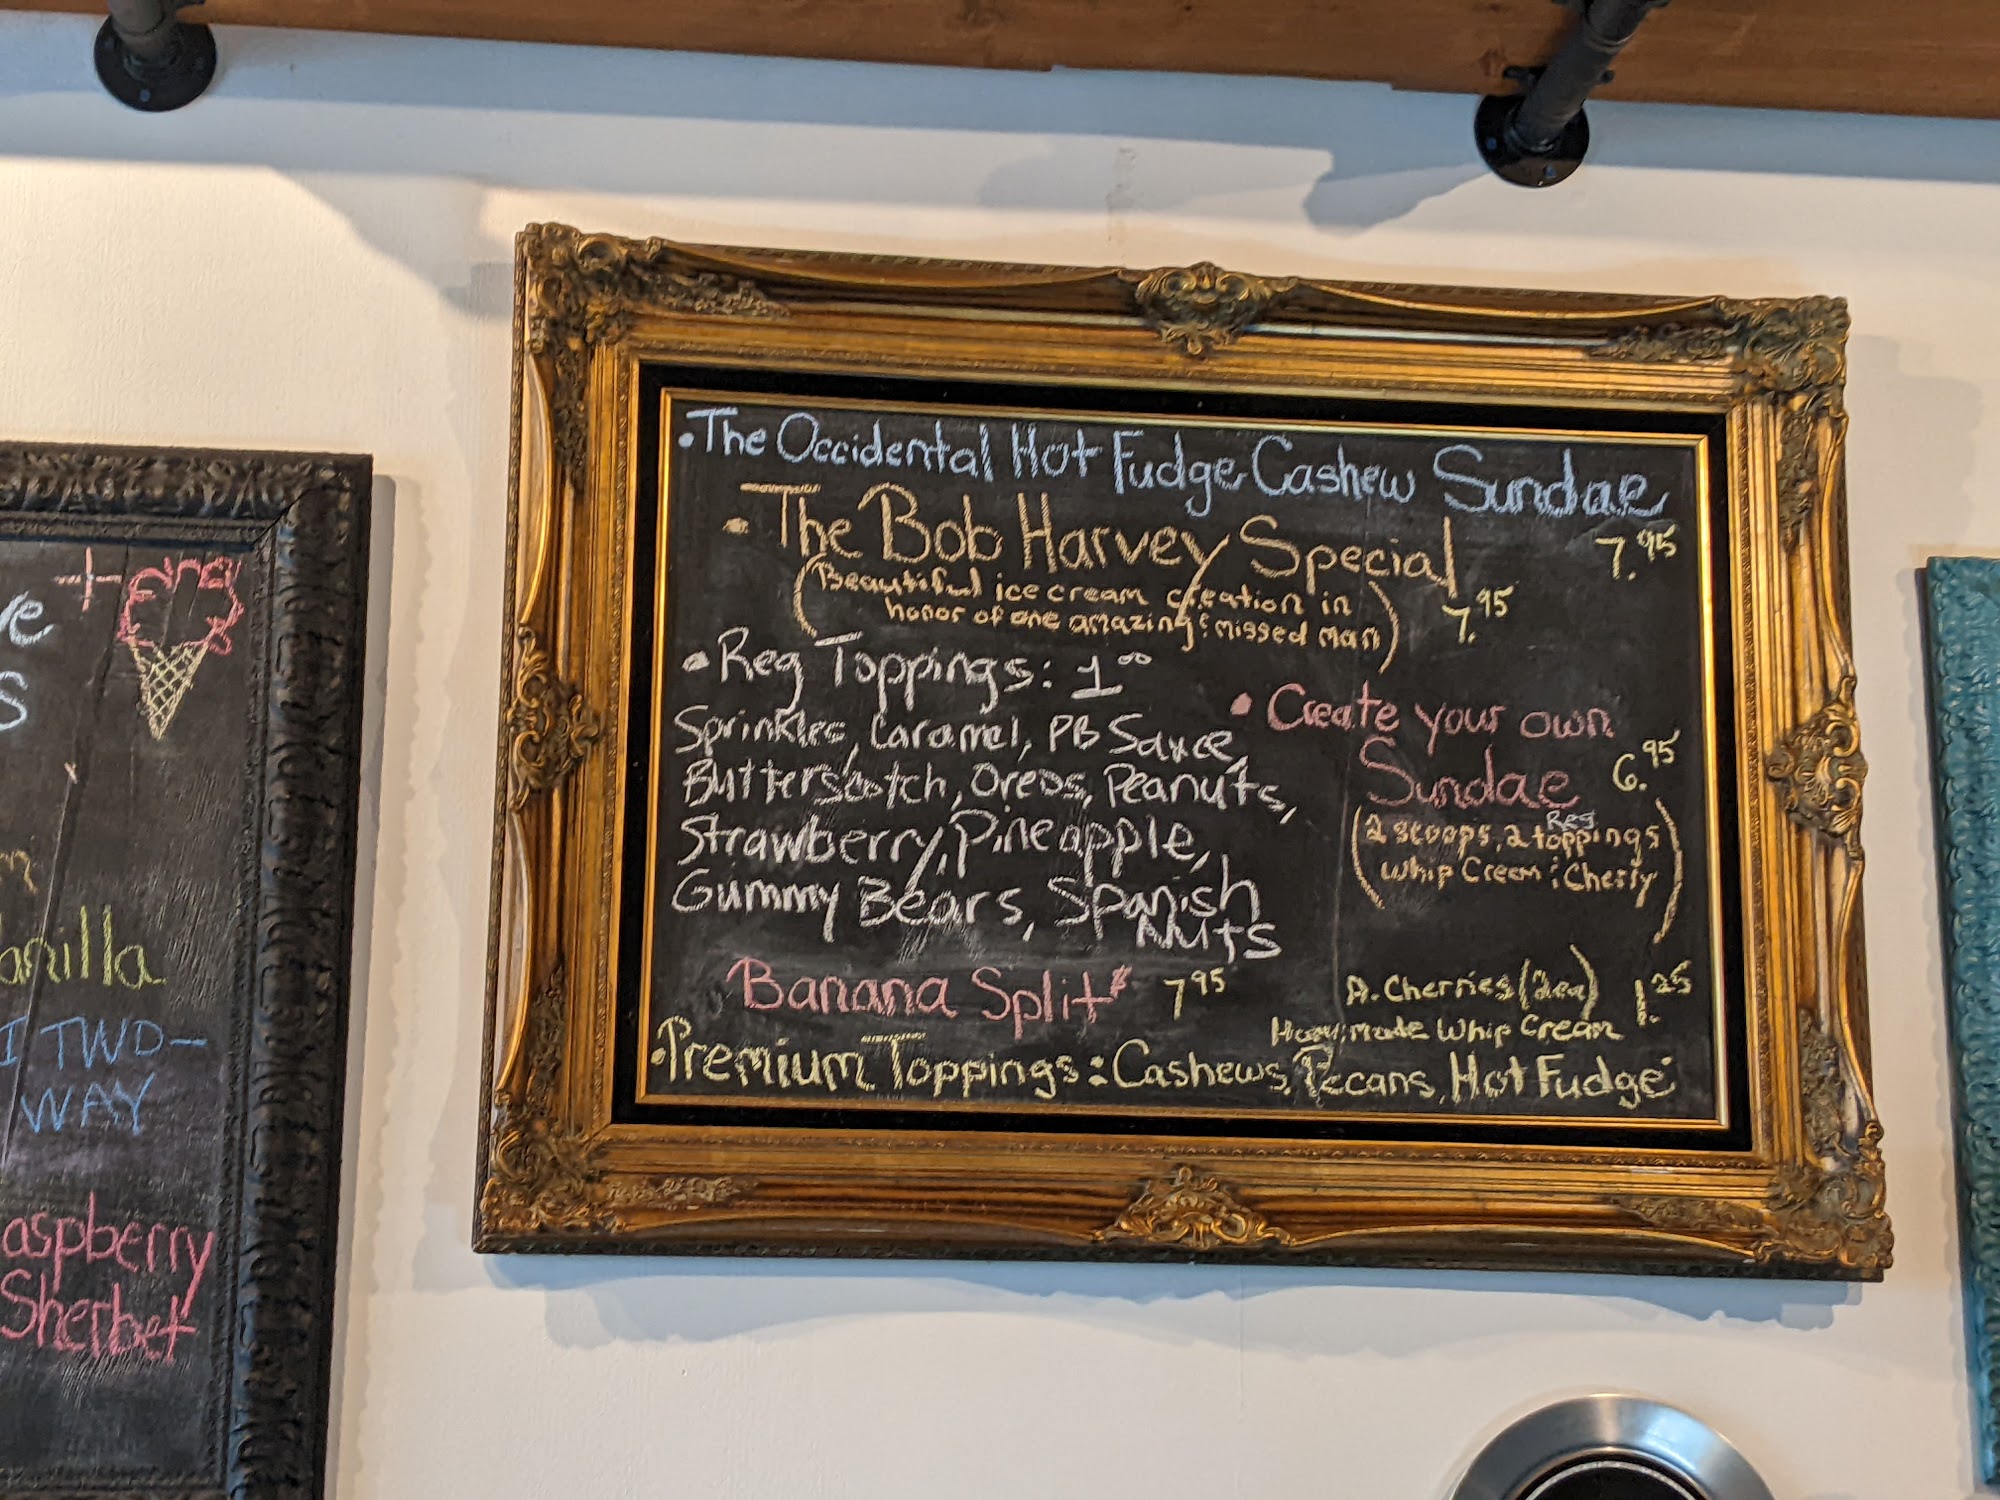 • The Occidental Hot Fudge Cashew Sundae
7.95
• The Bob Harvey Special
(Beautiful ice cream creation in
honor of one amazing & missed man)
7.95
• Reg Toppings: 1.00
Sprinkles, Caramel, PB Sauce,
Butterscotch, Oreos, Peanuts,
Strawberry, Pineapple,
Gummy Bears, Spanish
Nuts
• Create your own
Sundae 6.95
Reg
(2 scoops, 2 toppings
Whip Cream & Cherry)
Banana Split 7.95
A. Cherries (2ea) 1.25
Made Whip Cream
• Premium Toppings: Cashews, Pecans, Hot Fudge
+
S
anilla
I TWO-
WAY
aspberry
Sherbet